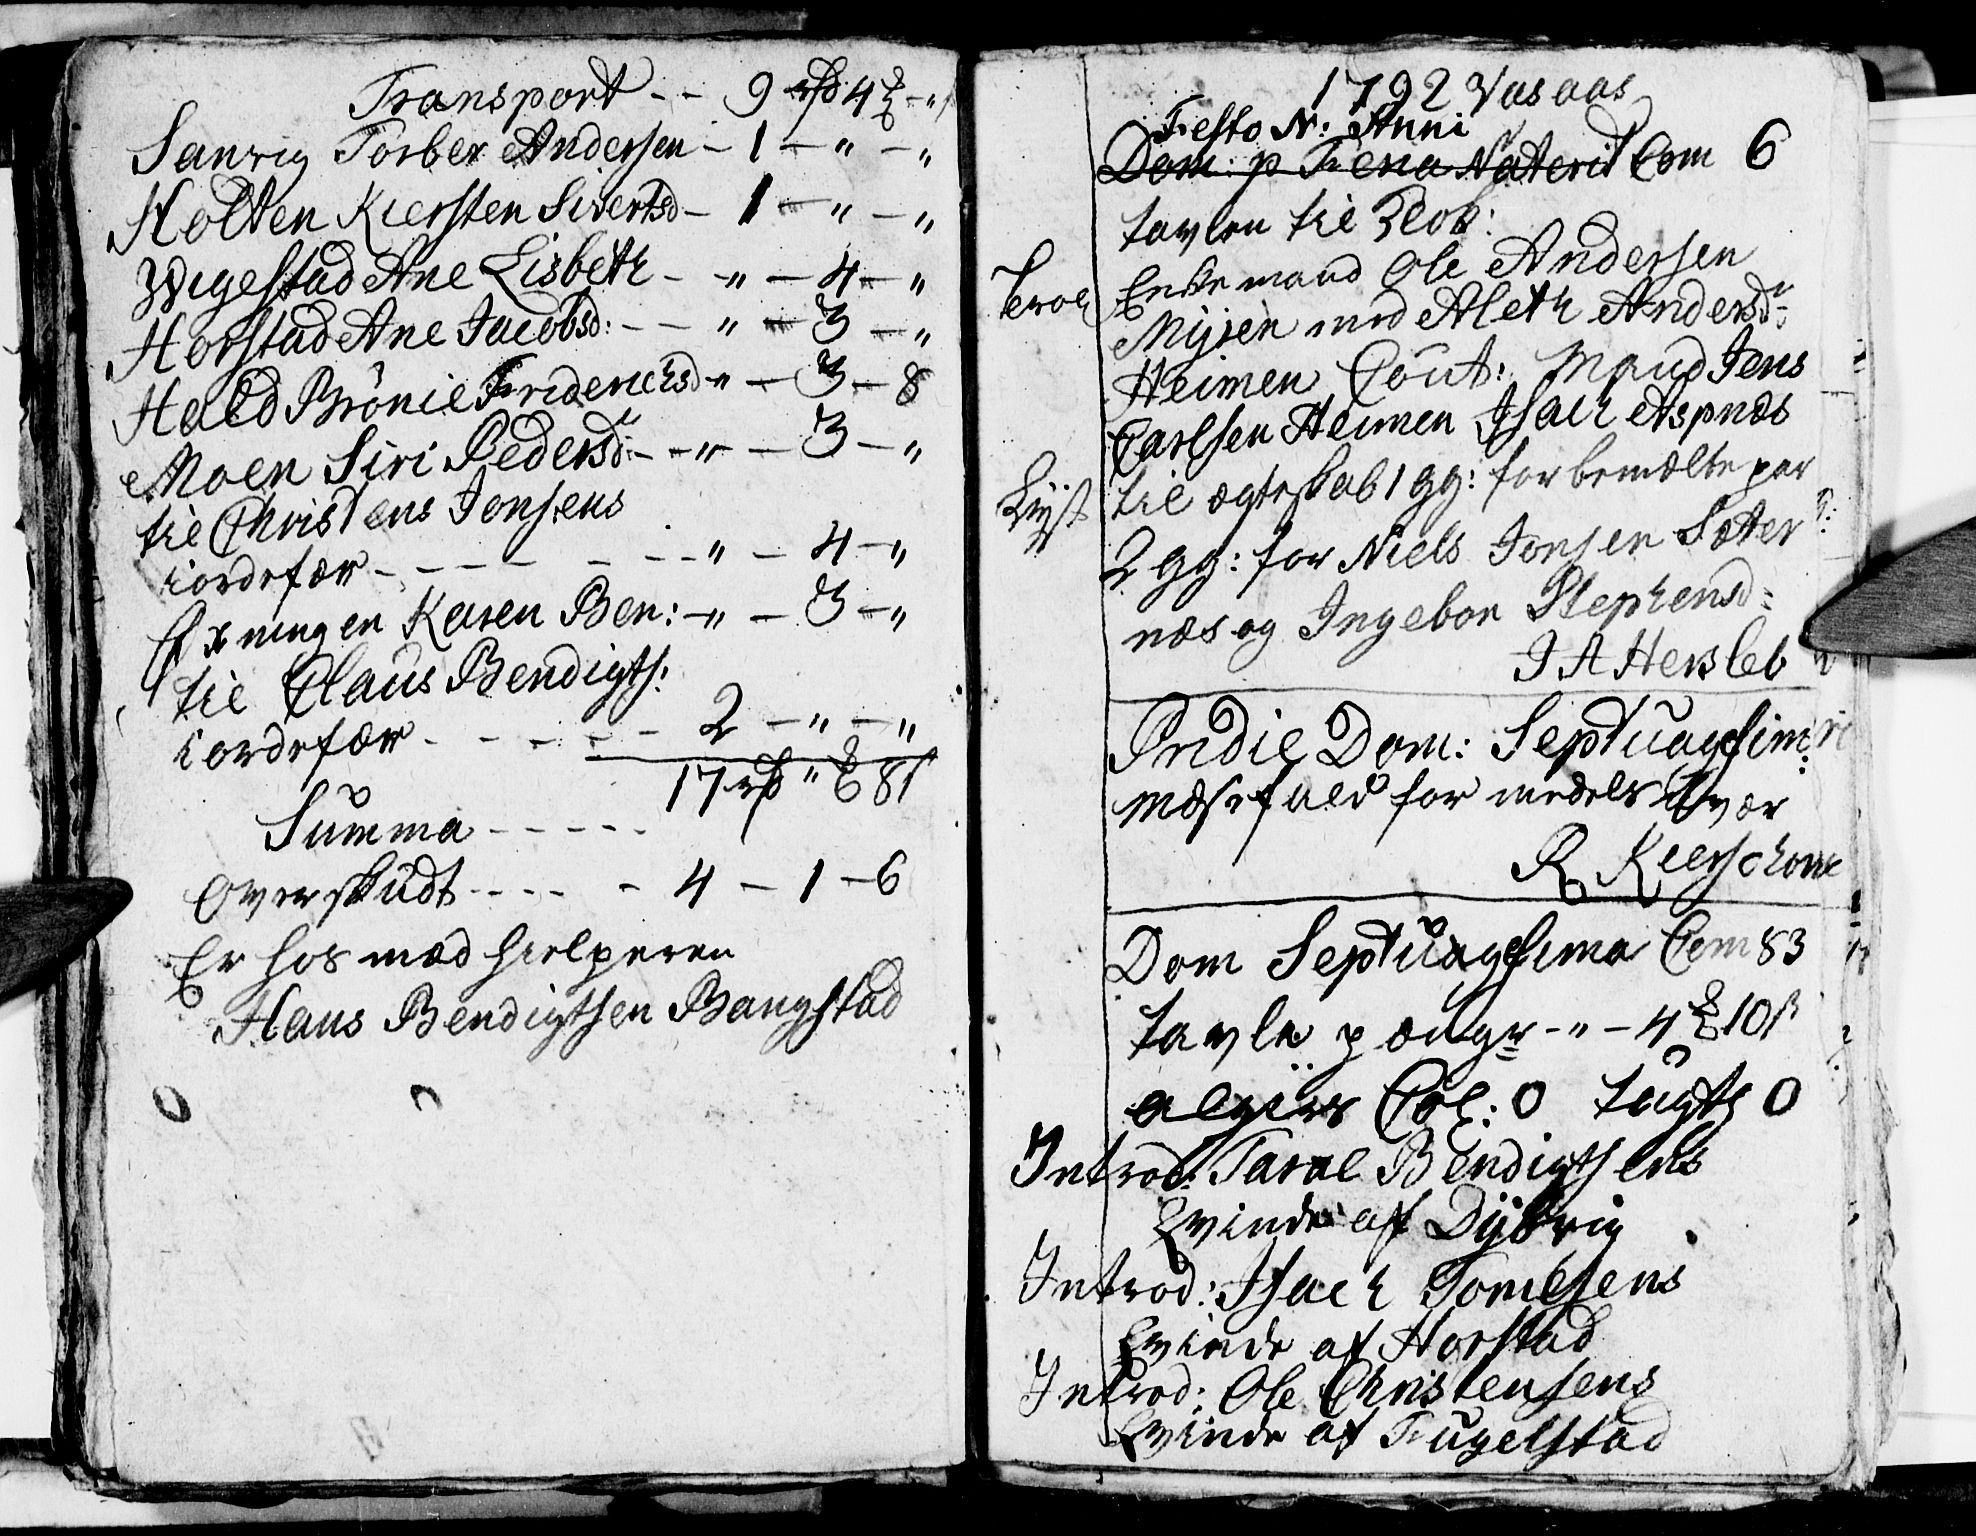 Transport -- 9 rd 4 " "
Sanvig Torber Andersen - 1 - " - "
Holten Kiersten Sivertsd - 1 - " - "
Wigestad Ane Lisbeth - " - 4 - "
Horstad Ane Jacobsd: - - " - 3 - "
Hald Brönil Friderichsd " - 3 - 8
Moen Siri Pedersdr - - " - 3 - "
til Christens Jonsens
iordefær - - - - - - - " - 4 - "
Karen Ben: - " - 3 - "
til Claus Bendigts:
iordefær - - - - - - 2 - " - "
17 rd " 8 ß
Summa - - - - -
Overskudt - - - - 4 - 1 - 6
Er hos mæd hielperen
Hans Bendigtsen Bangstad
1792 Vasaas
Festo N: Anni
Dom: p Com 6
tavlen til
Trol Enkemand Ole Andersen
Myren med Aleth Andersdr
Heimen Cout: Mand Jens
Carlsen Heimen Isach Aspnæs
Lyst til ægteskab 1 gg: for bemælte par
2 gg: for Niels Jonsen Sæter
næs og Ingebor Stephensd:
J A Hersleb
Pridie Dom: Septuagesim:
mæsefald for medelst Uvær
R Kierschow
Dom Septuagesima Com 83
tavle pænger - " - 4 10 ß
algiers Col: 0 tugts 0
Introd: Taral Bendigtsens
Qvinde af Dybvig
Introd: Isach Tomesens
Qvinde af Horstad
Introd: Ole Christensens
Qvinde af Fugelstad